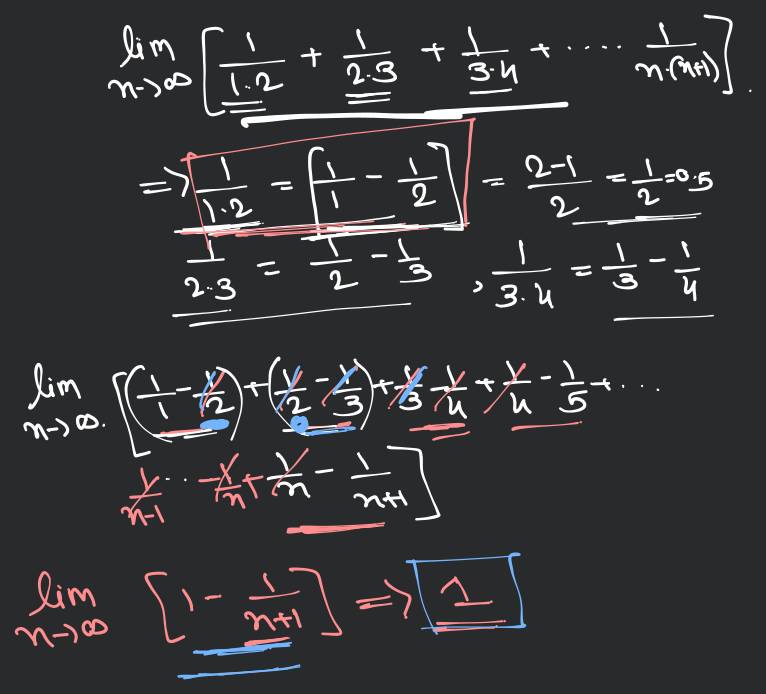 lim n→∞ [ 1/1·2 + 1/2·3 + 1/3·4 + ···· 1/n·(n+1) ].
=> 1/1·2 = [ 1/1 − 1/2 ] = 2−1/2 = 1/2 = 0.5
1/2·3 = 1/2 − 1/3 , 1/3·4 = 1/3 − 1/4
lim n→∞. [ (1/1 − 1/2) + (1/2 − 1/3) + 1/3 − 1/4 + 1/4 − 1/5 + ···
1/n−1 ·· − 1/n + 1/n − 1/n+1 ]
lim n→∞ [ 1 − 1/n+1 ] => 1